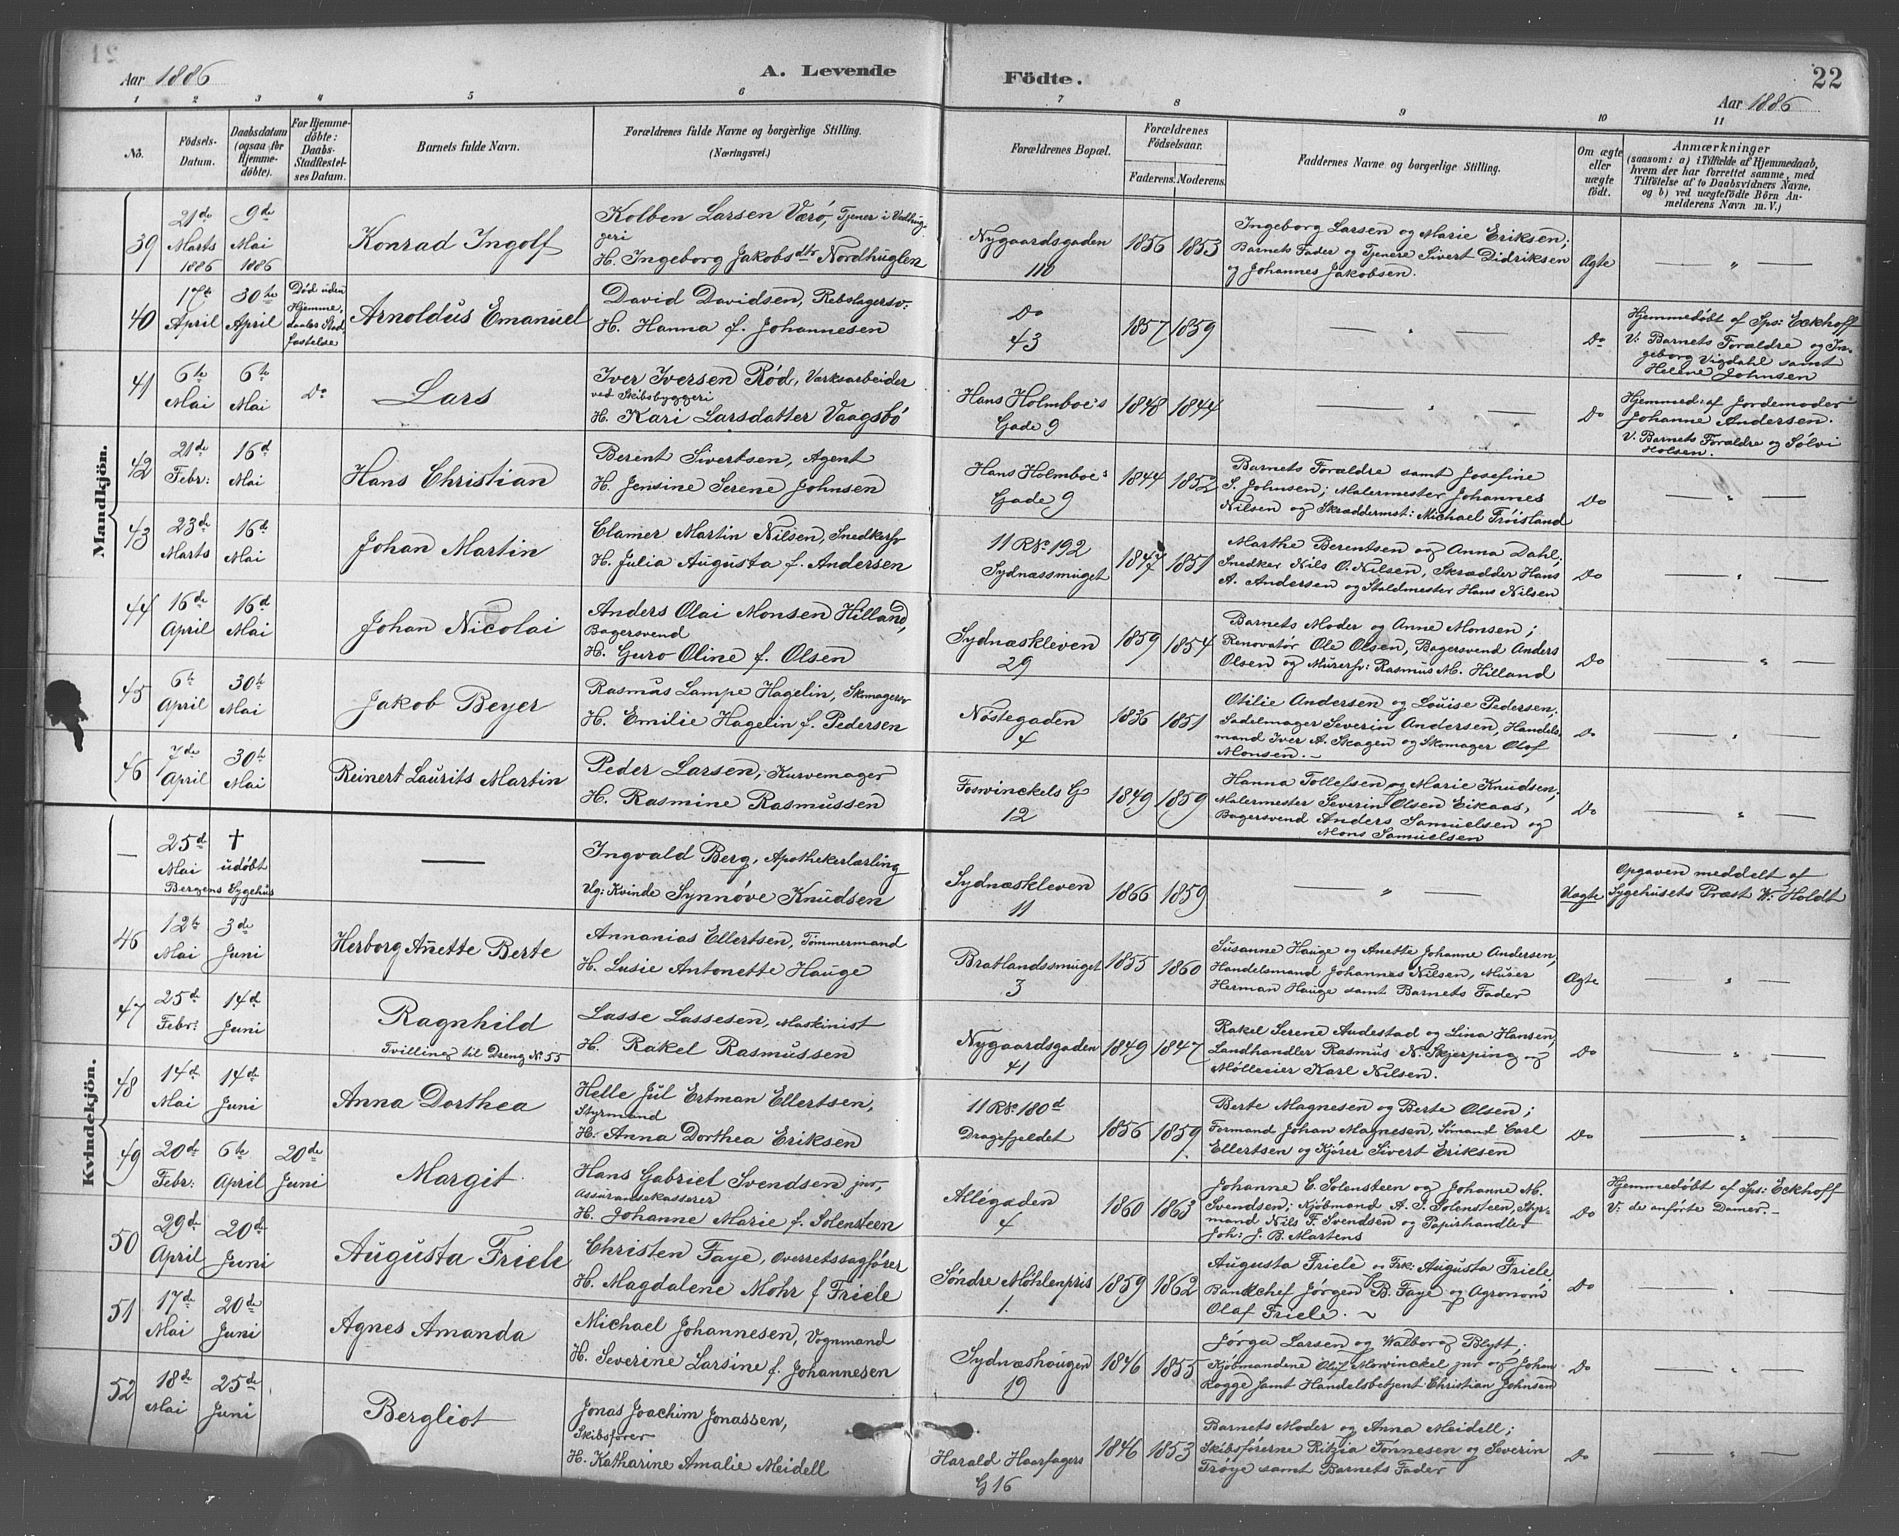 Aar 1886
A. Levende
Födte.
22
Aar 1886
1 2 3 4 5 6 7 8 9 10 11
No.
Födsels-
Datum.
Daabsdatum
(ogsaa for
Hjemme-
döbte).
For Hjemme-
döbte:
Daabs-
Stadfestel-
ses Datum.
Barnets fulde Navn.
Forældrenes fulde Navne og borgerlige Stilling.
(Næringsvei.)
Forældrenes Bopæl.
Forældrenes
Födselsaar.
Faderens. Moderens.
Faddernes Navne og borgerlige Stilling.
Om ægte
eller
uægte
födt.
Anmærkninger
(saasom: a) i Tilfælde af Hjemmedaab,
hvem der har forrettet samme, med
Tilföielse af to Daabsvidners Navne,
og b) ved uægtefödte Börn An-
melderens Navn m. V.)
Mandkjön.
39
21de
Marts
1886
9de
Mai
1886
Konrad Ingolf
Kolben Larsen Værø, Tjener i Vadhug-
geri
H. Ingeborg Jakobsdtr Nordhuglen
Nygaardsgaden
110
1856 1853
Ingeborg Larsen og Marie Eriksen;
Barnets Fader og Tjenere Sivert Didriksen
og Johannes Jakobsen.
Ægte
— " —
40
17de
April
30te
April
Død uden
Hjemme-
daabs Stad
fæstelse
Arnoldus Emanuel
David Davidsen, Rebslagersv:
H. Hanna f. Johannesen
Do
43
1857 1859
— " —
Do
Hjemmedøbt af Sps: Eckhoff
V: Barnets Forældre og In-
geborg Vigdahl samt
Helene Johnsen
41
6te
Mai
6te
Mai
Do
Lars
Iver Iversen Rød, Værksarbeider
ved Skibsbyggeri
H. Kari Larsdatter Vaagsbö
Hans Holmboe's
Gade 9
1848 1844
— " —
Do
Hjemmed: af Jordemoder
Johanne Andersen.
V: Barnets Forældre og Sølvi
Holsen.
42
21de
Febr:
16d
Mai
Hans Christian
Berent Sivertsen, Agent
H. Jensine Serene Johnsen
Hans Holmboe's
Gade 9
1844 1852
Barnets Forældre samt Josefine
S. Johnsen; Malermester Johannes
Nilsen og Skræddermst: Michael Trøisland
Do
— " —
43
23de
Marts
16d
Mai
Johan Martin
Clamer Martin Nilsen, Snedkersv
H. Julia Augusta f. Andersen
11 R No 192
Sydnæssmuget
1847 1851
Marthe Berentsen og Anna Dahl;
Snedker Nils O. Nilsen, Skrædder Hans
A. Andersen og Staldmester Hans Nilsen
Do
— " —
44
16de
April
16d
Mai
Johan Nicolai
Anders Olai Monsen Hilland,
Bagersvend
H. Guro Oline f. Olsen
Sydnæskleven
29
1859 1854
Barnets Moder og Anne Monsen;
Renovatør Ole Olsen, Bagersvend Anders
Olsen og Murersv: Rasmus M. Hilland
Do
— " —
45
6te
April
30te
Mai
Jakob Beyer
Rasmus Lampe Hagelin, Skomagersv
H. Emilie Hagelin f. Pedersen
Nøstegaden
4
1836 1851
Otilie Andersen og Louise Pedersen;
Sadelmager Severin Andersen, Handels-
mand Iver A. Skagen og Skomager Olaf
Monsen. -
Do
— " —
46
7de
April
30te
Mai
Reinert Laurits Martin
Peder Larsen, Kurvemager
H. Rasmine Rasmussen
Foswinckels G
12
1849 1859
Hanna Tollefsen og Marie Knudsen;
Malermester Severin Olsen Eikaas,
Bagersvend Anders Samuelsen og
Mons Samuelsen
Do
— " —
Kvindekjön.
—
25d
Mai
†
udøbt
Bergens Sygehus
—
Ingvald Berg, Apothekerlærling
Ug: Kvinde Synnøve Knudsen
Sydnæskleven
11
1866 1859
— " —
Uægte
Opgaven meddelt af
Sygehusets Præst W. Holdt
46
12te
Mai
3de
Juni
Herborg Anette Berte
Annanias Ellertsen, Tømmermand
H. Lusie Antonette Hauge
Bratlandssmuget
3
1855 1860
Susanne Hauge og Anette Johanne Andersen,
Handelsmand Johannes Nilsen, Murer
Herman Hauge samt Barnets Fader
Ægte
— " —
47
25d
Febr:
14d
Juni
Ragnhild
Tvilling til Dreng No 55
Lasse Lassesen, Maskinist
H. Rakel Rasmussen
Nygaardsgaden
41
1849 1847
Rakel Serene Audestad og Lina Hansen,
Landhandler Rasmus N. Skjerping og
Mølleeier Karl Nilsen.
Do
— " —
48
14d
Mai
14d
Juni
Anna Dorthea
Helle Jul Ertman Ellertsen,
Styrmand
H. Anna Dorthea Eriksen
11 R No 180d
Dragefjeldet
1856 1859
Berte Magnesen og Berte Olsen;
Formand Johan Magnesen, Sømand Carl
Ellertsen og Kjører Sivert Eriksen
Do
— " —
49
20de
Febr:
6te
April
20de
Juni
Margit
Hans Gabriel Svendsen jur,
Assuransekasserer
H. Johanne Marie f. Solensteen
Allégaden
4
1860 1863
Johanne C. Solensteen og Johanne M.
Svendsen; Kjøbmand A. S. Solensteen, Styr-
mand Nils F. Svendsen og Papirhandler
Joh: J. B. Martens
Do
Hjemmedøbt af Sps: Eckhoff
V: de anførte Damer. -
50
29de
April
20de
Juni
Augusta Friele
Christen Faye, Overretssagfører
H. Magdalene Mohr f Friele
Søndre Møhlenpris
1.
1859 1862
Augusta Friele og Frk: Augusta Friele
Bankchef Jørgen B. Faye og Agronom
Olaf Friele. ~
Do
— " —
51
17de
Mai
20de
Juni
Agnes Amanda
Michael Johannesen, Vognmand
H. Severine Larsine f. Johannesen
Sydnæshougen
19
1846 1855
Jørga Larsen og Walborg Blytt;
Kjøbmandene Oluf Mowinckel jur og Johan
Rogge samt Handelsbetjent Christian Johnsen
Do
— " —
52
18de
Mai
25de
Juni
Bergliot
Jonas Joachim Jonassen,
Skibsfører
H. Katharine Amalie Meidell
Harald Haarfagers
G 16
1846 1853
Barnets Moder og Anna Meidell;
Skibsførerne Ritzia Tønnesen og Severin
Trøye samt Barnets Fader
Do
— " —